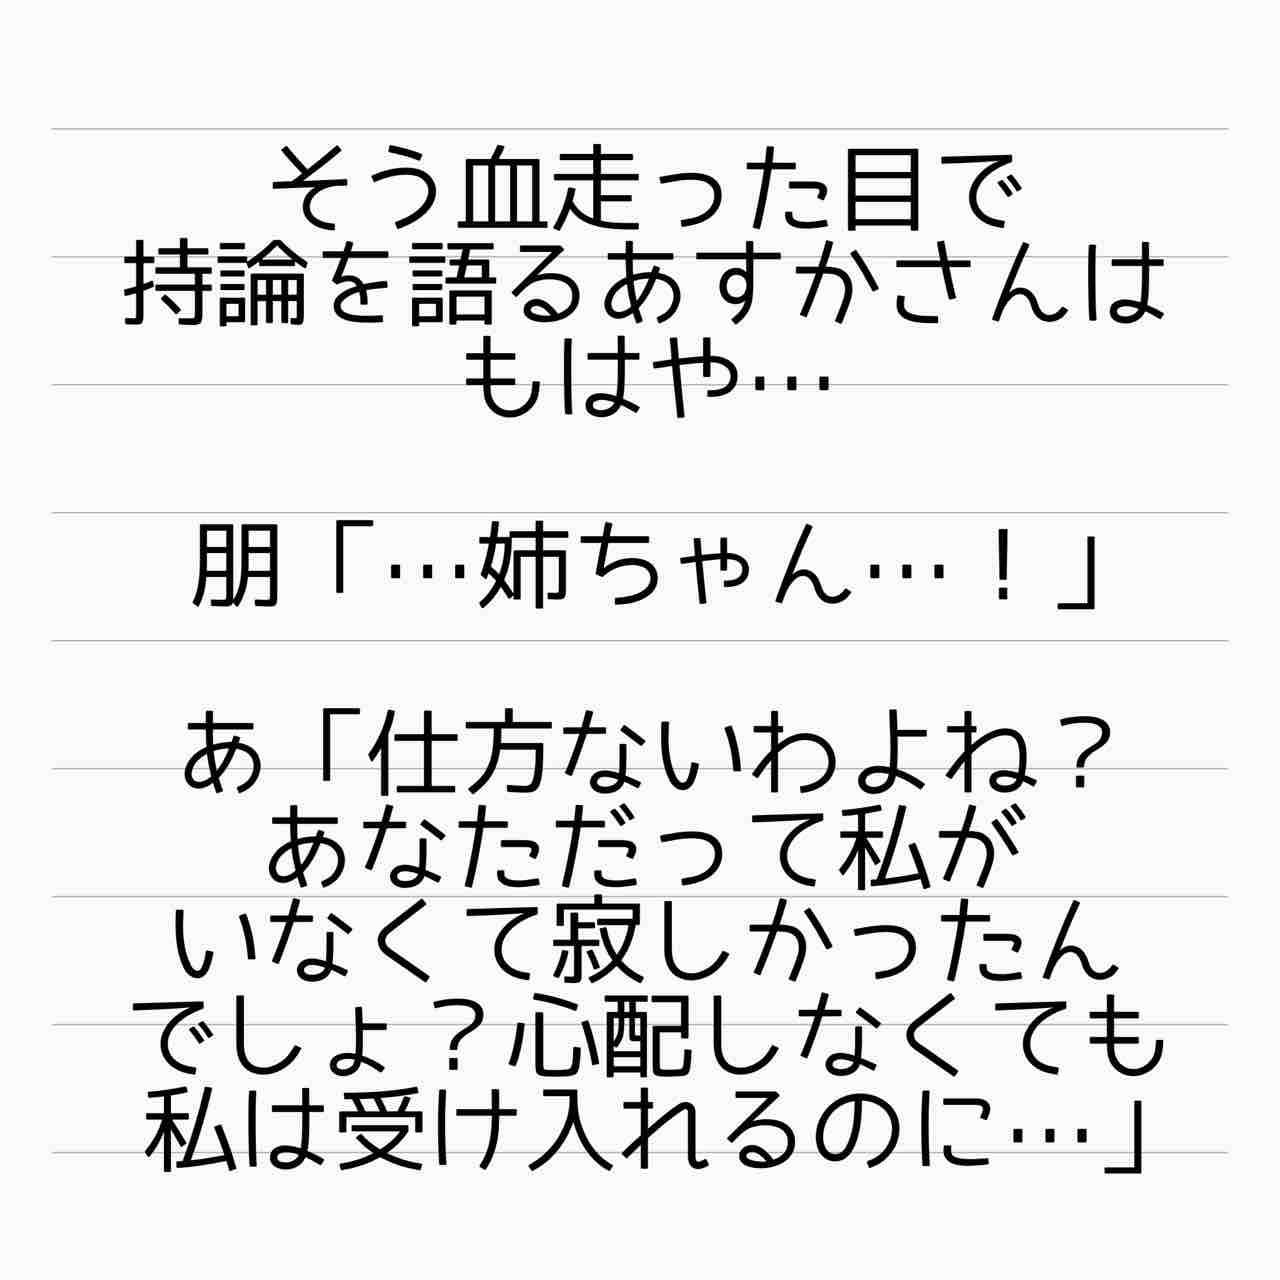 そう血走った目で
持論を語るあすかさんは
もはや…
朋「…姉ちゃん…！」
あ「仕方ないわよね？
あなただって私が
いなくて寂しかったん
でしょ？心配しなくても
私は受け入れるのに…」